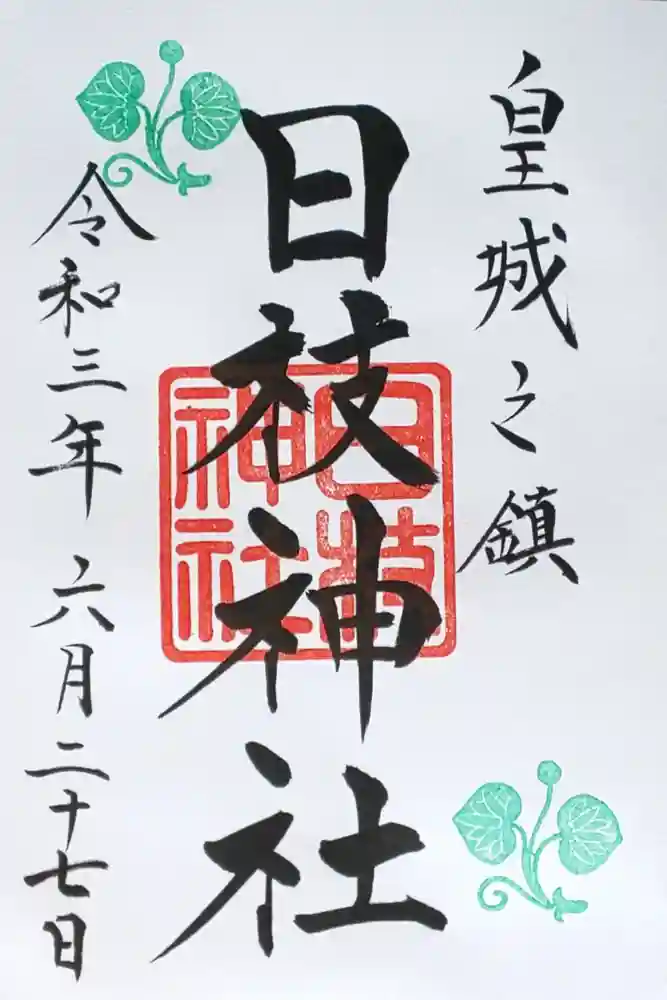 皇城之鎮
日枝神社
日枝
神社
令和三年六月二十七日